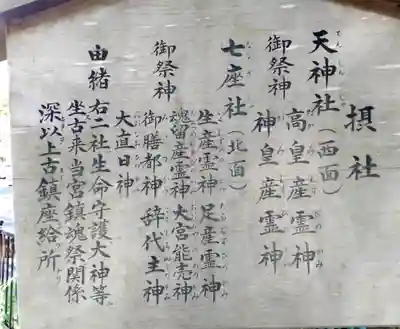 摂社
天神社（西面）
御祭神
高皇産霊神
神皇産霊神
七座社（北面）
御祭神
生産霊神 足産霊神
魂留産霊神 大宮能売神
御膳都神 辞代主神
大直日神
由緒 右二社生命守護大神等
坐古来当宮鎮魂祭関係
深以上古鎮座給所